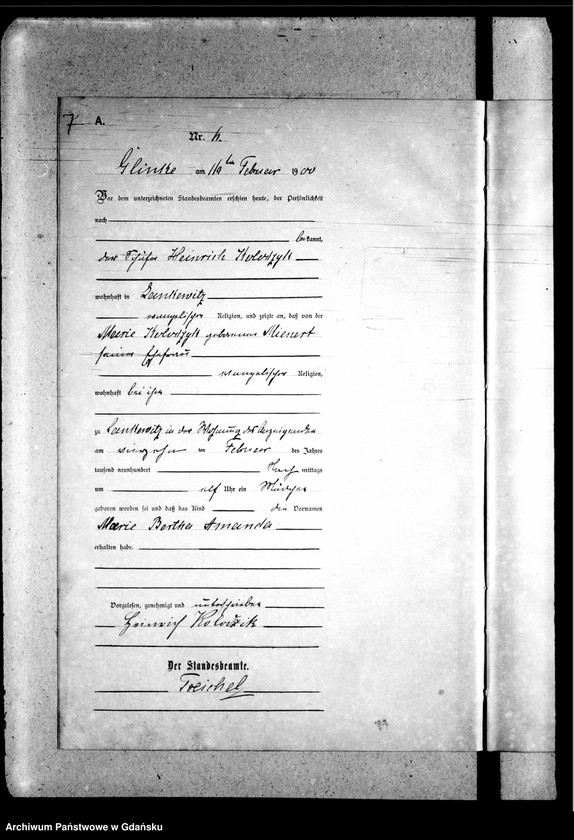 7 A.
Nr. 4.
Glinke am 19ten Februar 1900
Vor dem unterzeichneten Standesbeamten erschien heute, der Persönlichkeit
nach
bekannt,
der Schäfer Heinrich Kolodzyk
wohnhaft in Zankewitz
evangelischer Religion, und zeigte an, daß von der
Marie Kolodzyk geborenen Mienert
seiner Ehefrau
evangelischer Religion,
wohnhaft bei ihm
zu Zankewitz in der Wohnung des Anzeigenden
am vierzehn ten Februar des Jahres
tausend neunhundert Nach mittags
um elf Uhr ein Mädchen
geboren worden sei und daß das Kind den Vornamen
Marie Bertha Amanda
erhalten habe.
Vorgelesen, genehmigt und unterschrieben
Heinrich Kolodzik
Der Standesbeamte.
Treichel
Archiwum Państwowe w Gdańsku